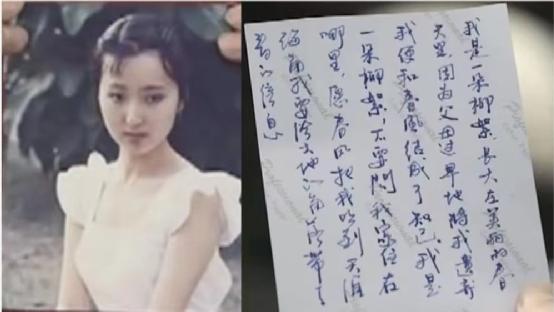 我是一朵柳絮长大在美丽的春
天里因为父母过早地将我遗弃
我便和春风结成了知己,我是
一朵柳絮,不要问我家住在
哪里,愿春风把我吹到天涯
海角我要给大地的角落带去
春的信息